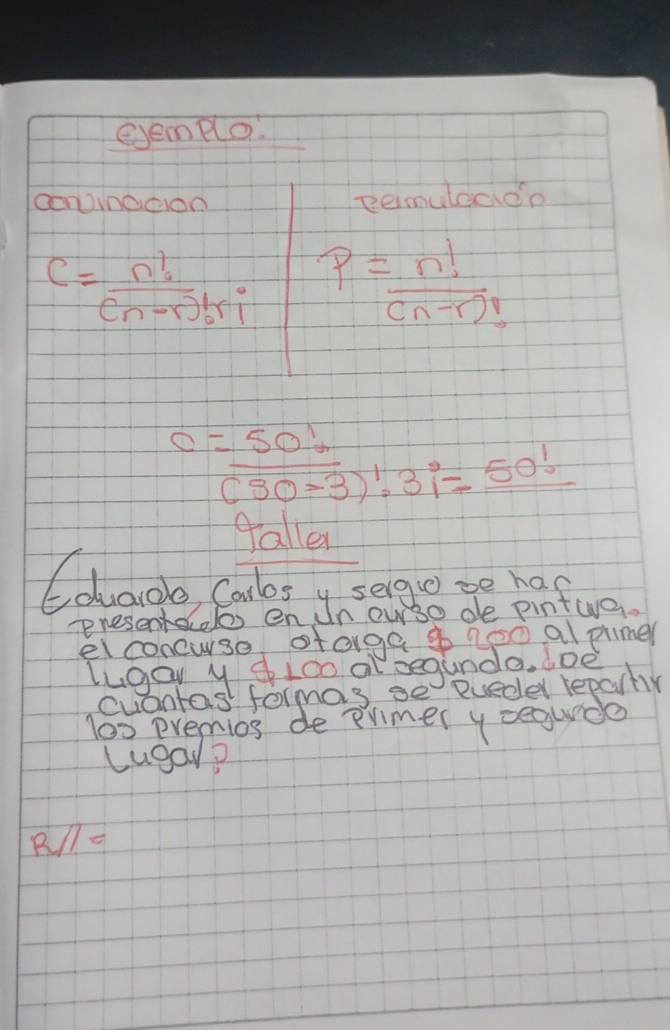 ejemplo:
convinacion permutación
C = n! P = n!
(n-r)!r¡ (n-r)!
C = 50!
(30-3)!3¡ = 50!
Taller
Eduardo, Carlos y sergio se han
presentado en un curso de pintura.
el concurso otorga $ 200 al primer
lugar y $ 100 al segundo. ¿De
cuantas formas se pueder repartir
los premios de primer y segundo
Lugar?
R//=